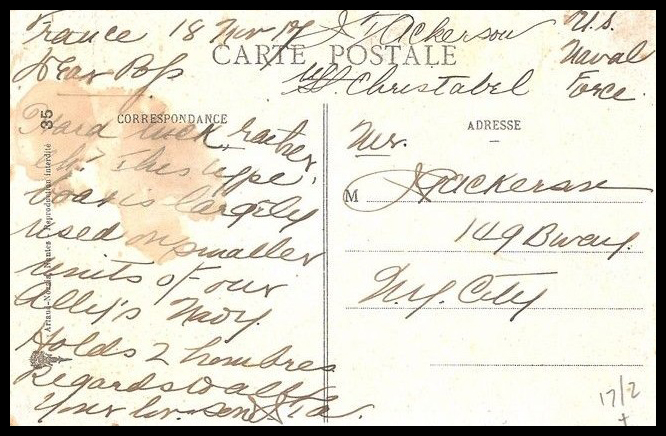 France 18 Nov 17
J T Ackerson
U.S.
Naval
Force
CARTE POSTALE
USS Christabel
Dear Pop
CORRESPONDANCE
Hard luck, rather,
eh? This type
boat is largely
used on smaller
units of our
Ally's Navy.
Holds 2 hombres
Regards to all
Your lov. son J Ta.
35
Nantes - Reproduction interdite
ADRESSE
Mr.
M J Ackerson
149 Bway.
N.Y. City
17/2
+